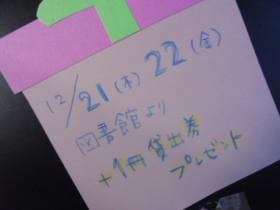 12/21(木) 22(金)
図書館より
+1冊 貸出券
プレゼント